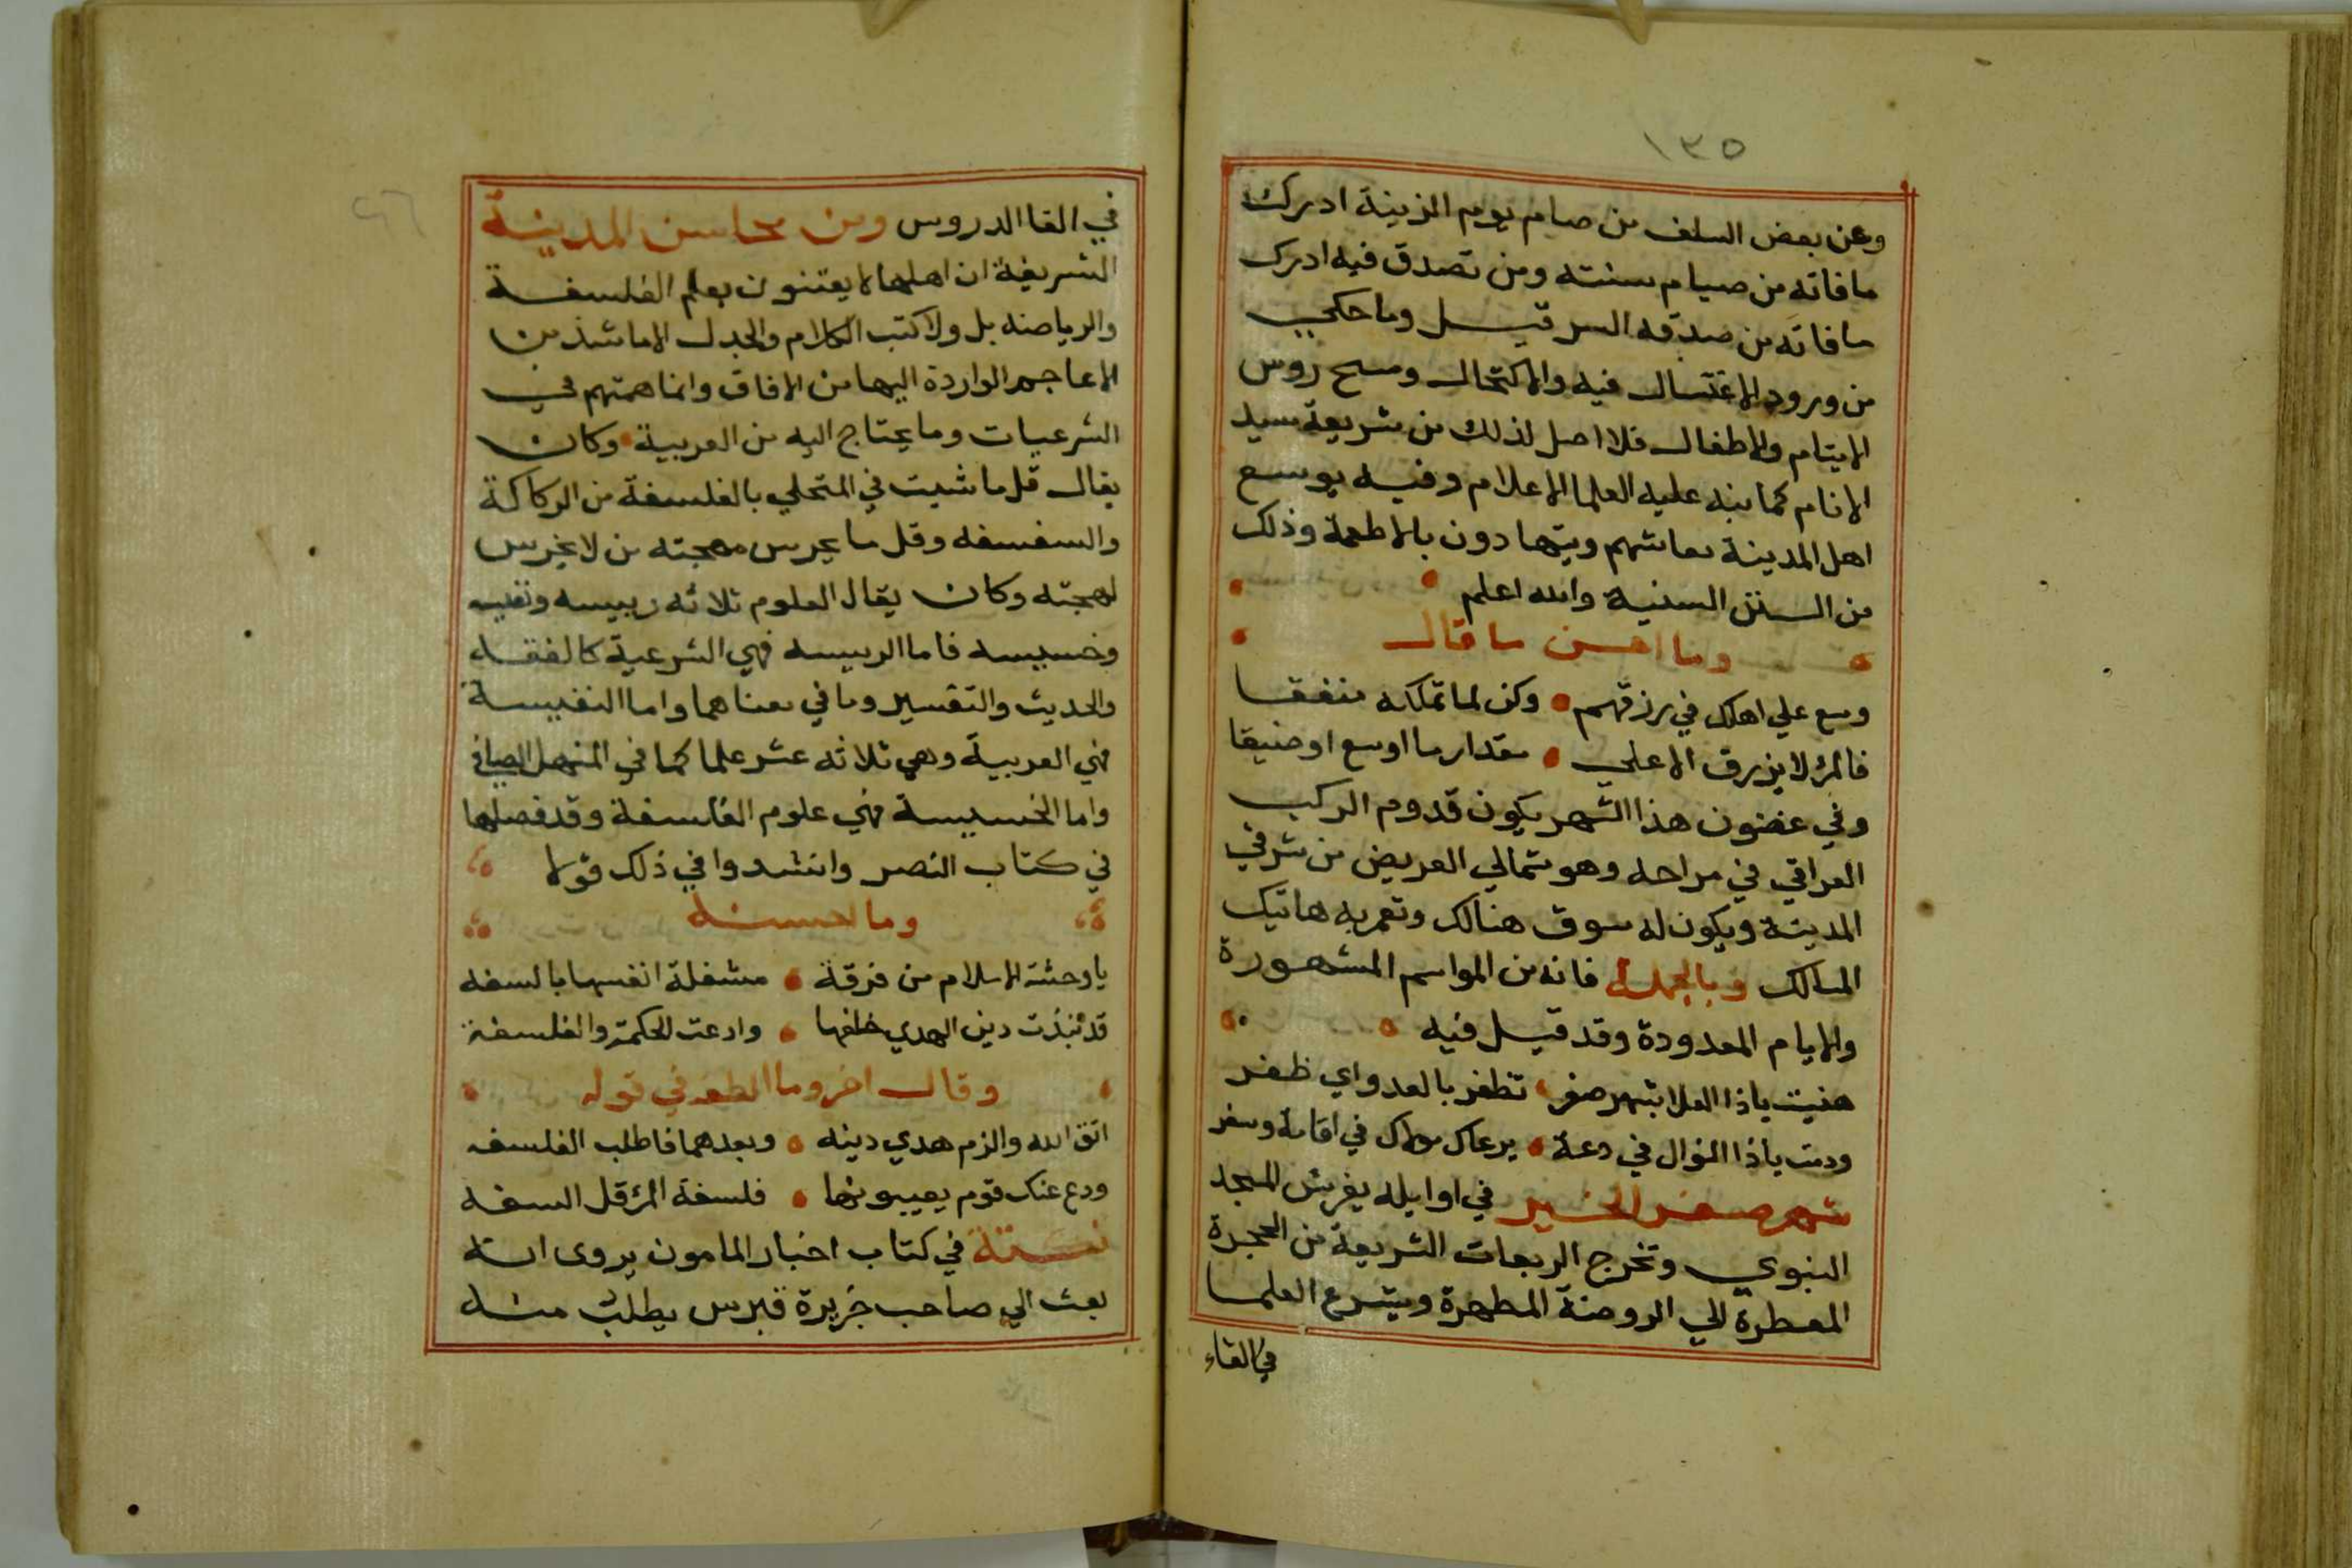 ١٣٥
وعن بعض السلف من صام يوم الزينة ادرك
ما فاته من صيام سنته ومن تصدق فيه ادرك
ما فاته من صدقه السر قيل وما حكي
من ورود الاغتسال فيه والاكتحال ومسح روس
الايتام والاطفال فلا اصل لذلك من شريعة سيد
الانام كما نبه عليه العلما الاعلام وفيه يوسع
اهل المدينة معاشهم ويتهادون بالاطعمة وذلك
من السنن السنية والله اعلم
وما احسن ما قال
وسع علي اهلك في رزقهم وكن لما تملكه منفقا
فالمرؤ لا يرزق الا علي مقدار ما اوسع او ضيقا
وفي غضون هذا الشهر يكون قدوم الركب
العراقي في مراحه وهو شمالي العريض من شرقي
المدينة ويكون له سوق هنالك وتعمر به هاتيك
المسالك وبالجملة فانه من المواسم المشهورة
والايام المعدودة وقد قيل فيه
هنيت ياذا العلا بشهر صفر تظفر بالعد واي ظفر
ودمت ياذا النوال في دعة يرعاك مولاك في اقامة وسفر
شهر صفر الخير في اوايله يفرش المسجد
النبوي وتخرج الربعات الشريعة من الحجرة
المعطرة الي الروضة المطهرة ويشرع العلما
في القاء
٤٦
في القا الدروس ومن محاسن المدينة
الشريفة ان اهلها لا يعتنون بعلم الفلسفة
والرياضه بل ولا كتب الكلام والجدل الا ما شذ من
الاعاجم الواردة اليها من الافاق وانما همتهم في
الشرعيات وما يحتاج اليه من العربية وكان
يقال قل ما شيت في المتحلي بالفلسفة من الركاكة
والسفسفه وقل ما يحرس مهجته من لا يخرس
لهجته وكان يقال العلوم ثلاثه رييسه ونفيسه
وخسيسه فاما الرييسه فهي الشرعية كالفقه
والحديث والتفسير وما في معناهما واما النفيسة
فهي العربية وهي ثلاثه عشر علما كما في المنهل الصافي
واما الخسيسة فهي علوم الفلسفة وقد فصلها
في كتاب النصر وانشدوا في ذلك قولا
وما احسنه
يا وحشة الاسلام من فرقة مشغلة انفسها بالسفه
قد نبذت دين الهدي خلفها وادعت الحكمة والفلسفة
وقال اخر وما الطفه في قوله
اتق الله والزم هدي دينه وبعدهما فاطلب الفلسفه
ودع عنك قوم يعيبونها فلسفة المرؤ قل السفه
في كتاب اخبار المامون يروى انه
بعث الي صاحب جزيرة قبرس يطلب منه